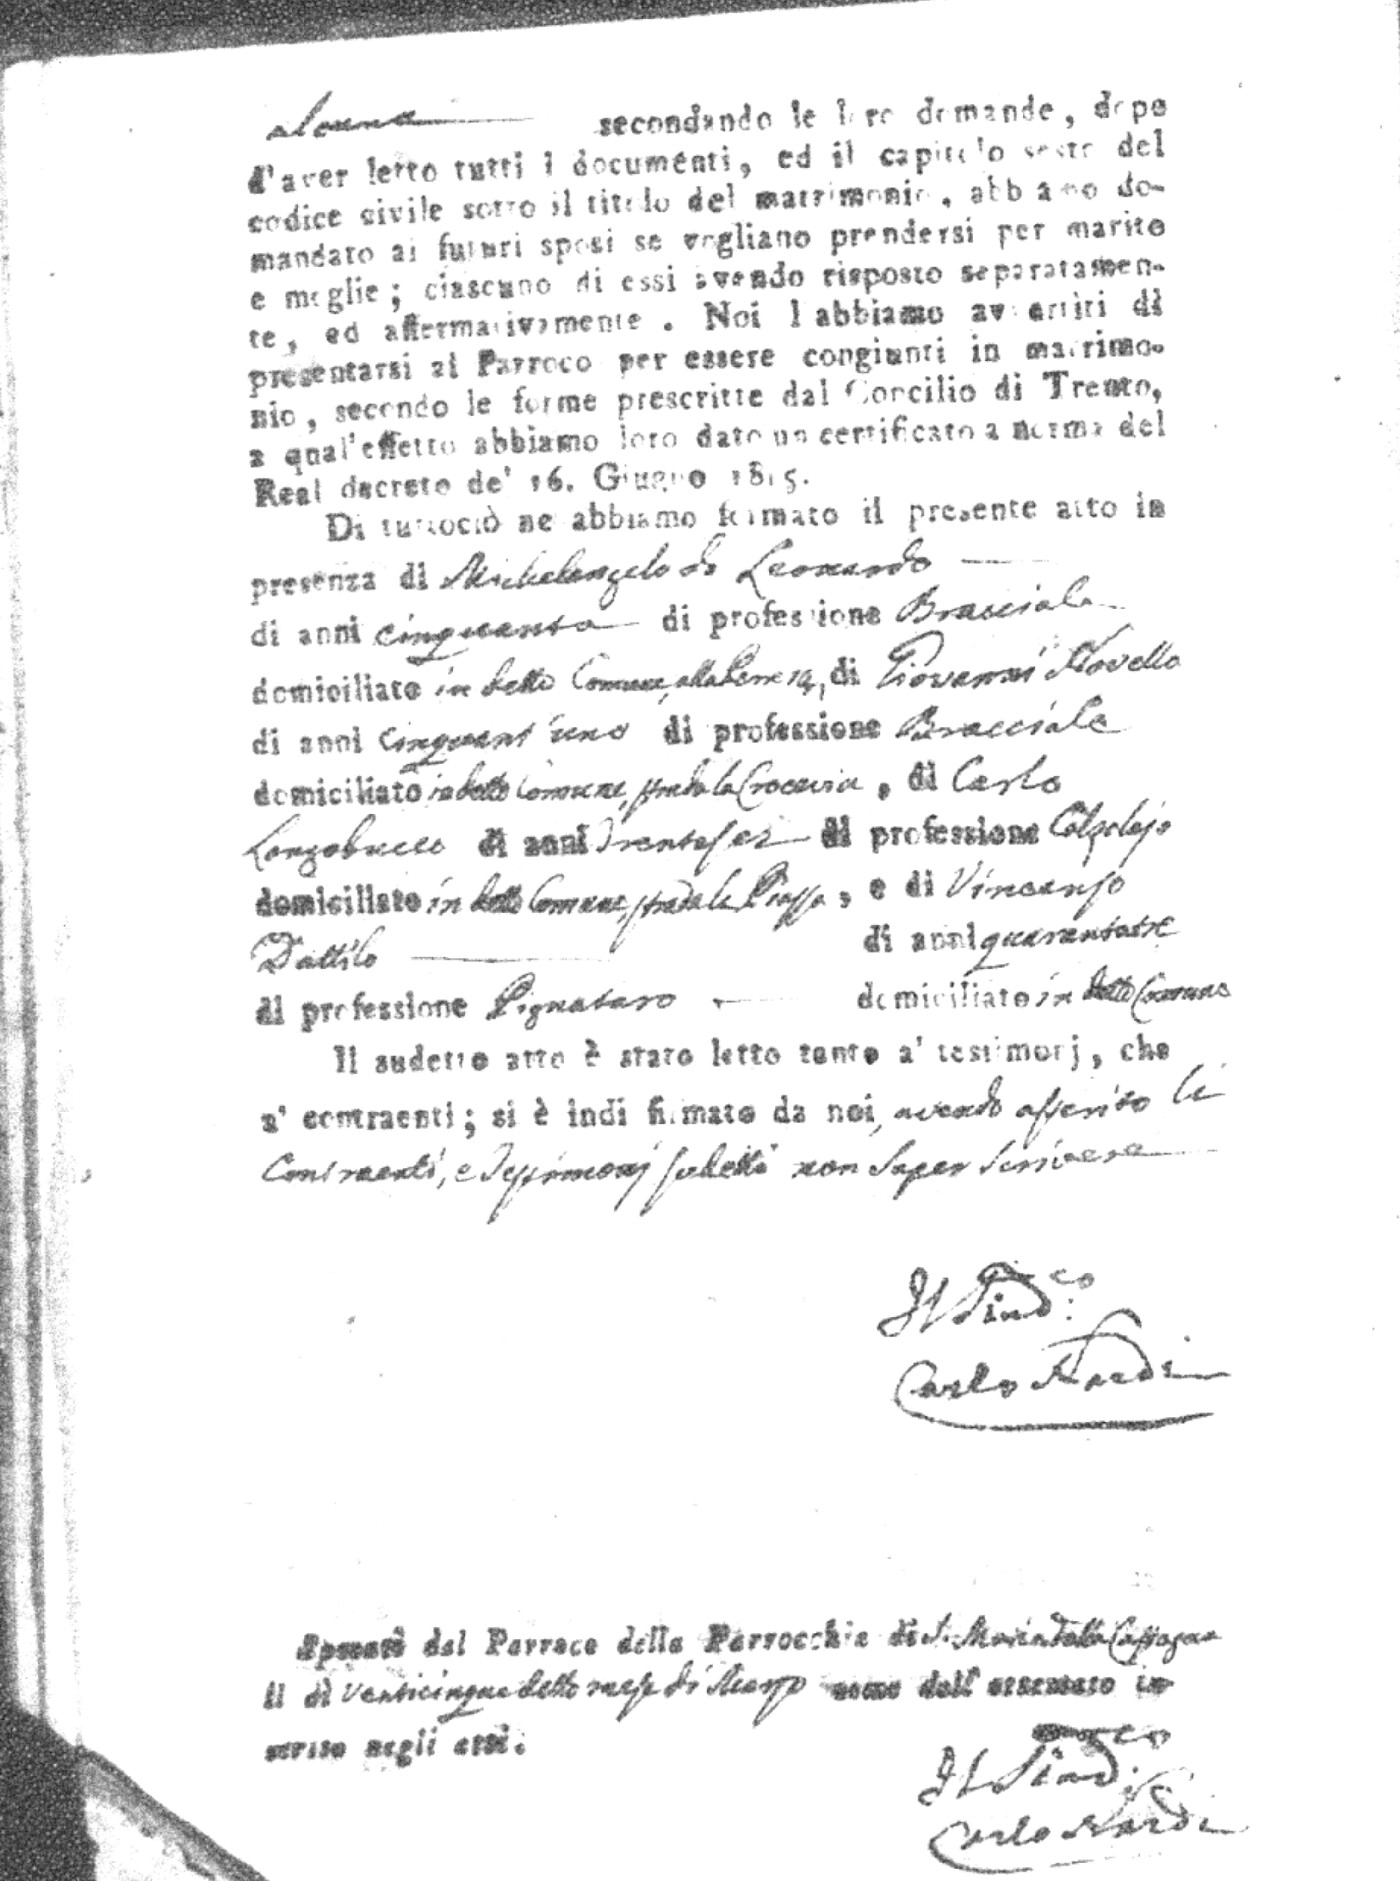 alcuna secondando le loro domande, dopo
d'aver letto tutti i documenti, ed il capitolo sesto del
codice civile sotto il titolo del matrimonio, abbiamo do-
mandato ai futuri sposi se vogliano prendersi per marito
e moglie; ciascuno di essi avendo risposto separatamen-
te, ed affermativamente. Noi l abbiamo avvertiti di
presentarsi al Parroco per essere congiunti in matrimo-
nio, secondo le forme prescritte dal Concilio di Trento,
a qual'effetto abbiamo loro dato un certificato a norma del
Real decreto de' 16. Giugno 1815.
Di tuttociò ne abbiamo formato il presente atto in
presenza di Michelangelo de Leonardo
di anni cinquanta di professione Bracciale
domiciliato in detto Comune, di Giovanni Novello
di anni cinquant'uno di professione Bracciale
domiciliato in detto Comune, strada la Croce, di Carlo
Longobucco di anni trentasei di professione Calzolajo
domiciliato in detto Comune, strada la Piazza, e di Vincenzo
Dattilo di anni quarantatre
di professione Pignataro domiciliato in detto Comune
Il sudetto atto è stato letto tanto a' testimonj, che
a' contraenti; si è indi firmato da noi, avendo asserito li
Contraenti, e Testimonj sudetti non saper scrivere
Il Sind.co
Carlo Nardi
Sposati dal Parroco della Parrocchia di S. Maria della
il dì venticinque detto mese di Marzo come dall' attestato in-
serito negli atti.
Il Sind.co
Carlo Nardi